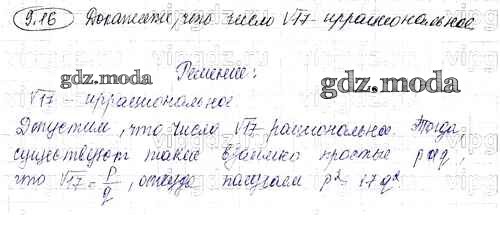 9.16 Докажите, что число √17-иррациональное
Решение:
gdz.moda
gdz.moda
√17 - иррациональное
Допустим, что число √17 рациональное. Тогда
существуют такие взаимно простые p и q,
что √17 = p/q, откуда получаем p² = 17q²